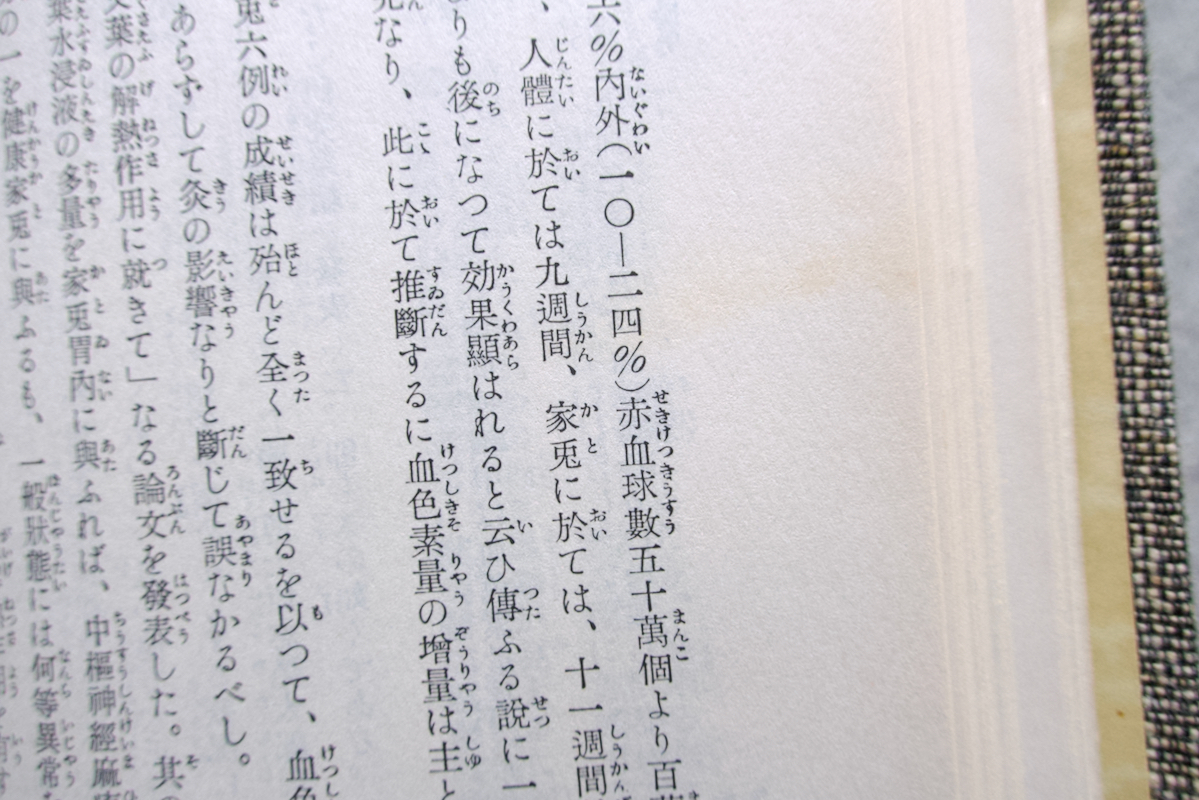 六%內外(一〇—二四%)赤血球數五十萬個より百
、人體に於ては九週間、家兎に於ては、十一週間
よりも後になつて効果顯はれると云ひ傳ふる說に一
なり、此に於て推斷するに血色素量の增量は主と
兎六例の成績は殆んど全く一致せるを以つて、血色
あらずして灸の影響なりと斷じて誤なかるべし。
葉の解熱作用に就きて」なる論文を發表した。其の
葉水浸液の多量を家兎胃內に與ふれば、中樞神經麻
の一を健康家兎に與ふるも、一般狀態には何等異常